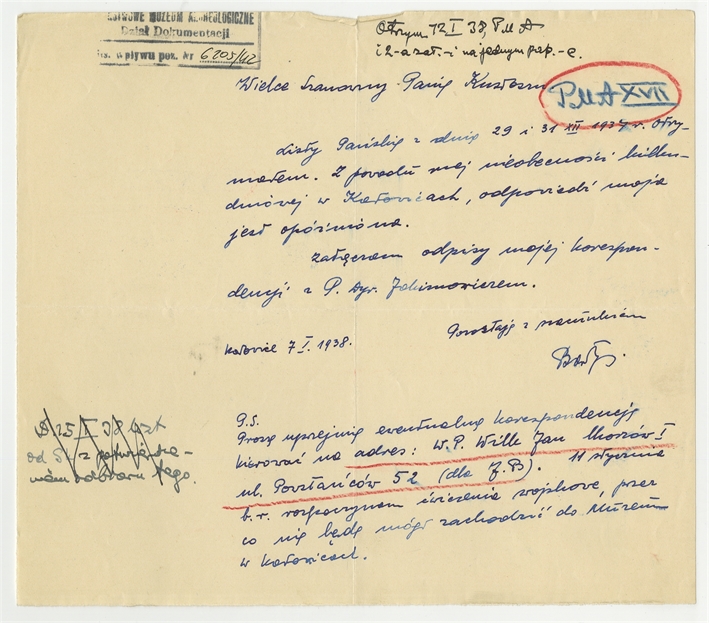 MUZEUM ARCHEOLOGICZNE
Dział Dokumentacji
wpływu poz. Nr 6205/42
Otrzym 12 I 38, P M A
i 2-a zał.-i na jednym pap.-e.
P M A XVII
Wielce Szanowny Panie Kustoszu
Listy Pańskie z dnia 29 i 31 XII 1937 r. otrzy-
małem. Z powodu mej nieobecności kilku-
dniowej w Katowicach, odpowiedź moja
jest opóźniona.
Załączam odpisy mojej korespon-
dencji z P. Dyr. Jakimowiczem.
Pozostaję z szacunkiem
Katowice 7 I. 1938.
Bartys.
P.S.
Proszę uprzejmie ewentualną korespondencję
kierować na adres: W.P. Wilk Jan Chorzów I
ul. Powstańców 52 (dla J.B). 11 stycznia
b.r. rozpoczynam ćwiczenia wojskowe, przez
co nie będę mógł zachodzić do Muzeum
w Katowicach.
25 I 38
od
odbioru tego.